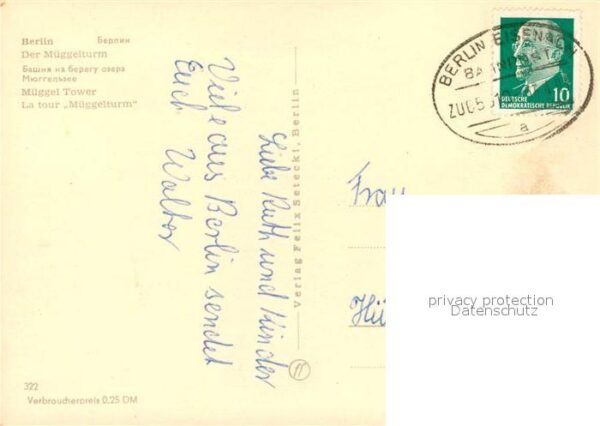 Berlin Берлин
Der Müggelturm
Башня на берегу озера
Мюггельзее
Müggel Tower
La tour „Müggelturm"
Liebe Ruth und Kinder
Viele aus Berlin sendet
Euch
Walter
Verlag Felix Setecki, Berlin
322
Verbraucherpreis 0,25 DM
BERLIN-EISENACH
BAHNPOST
ZUG
a
10
DEUTSCHE
DEMOKRATISCHE REPUBLIK
Frau
privacy protection
Datenschutz